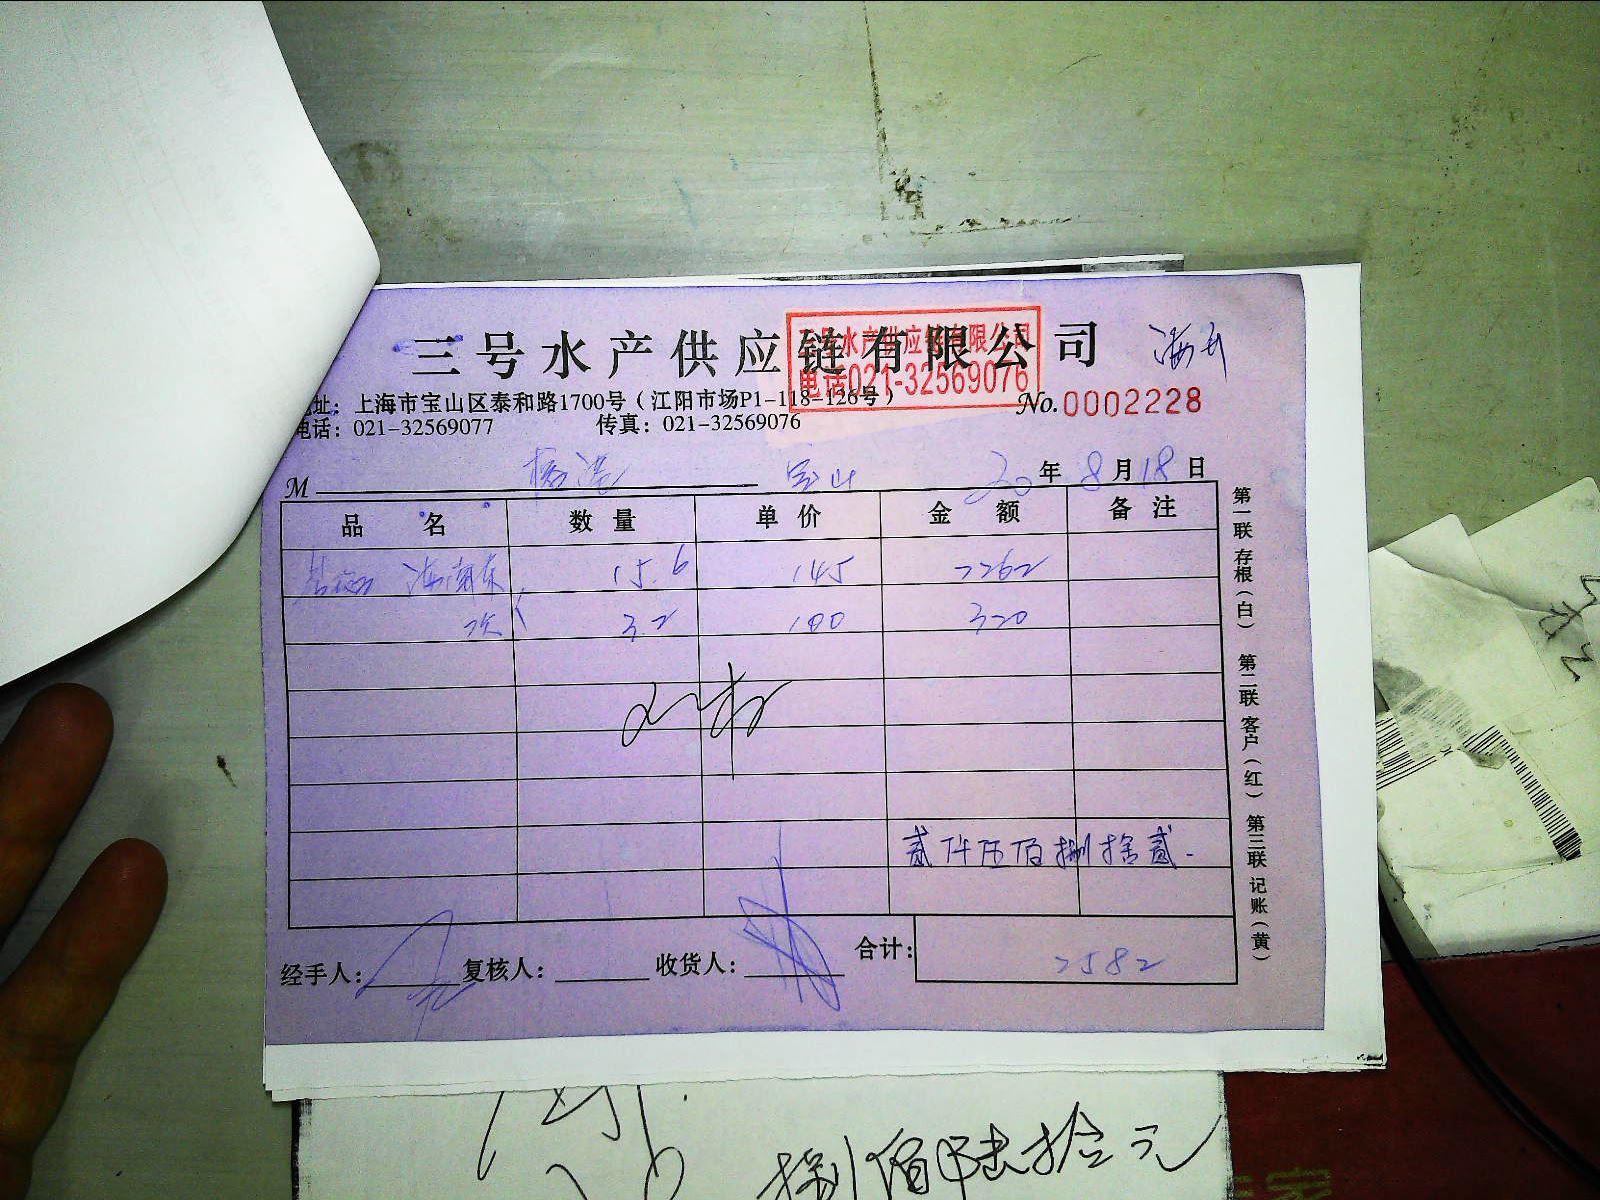 三号水产供应链有限公司
三号水产供应链有限公司
电话021-32569076
地址：上海市宝山区泰和路1700号（江阳市场P1-118-126号）
No.0002228
电话：021-32569077 传真：021-32569076
M 宝山 20年8月18日
品名 数量 单价 金额 备注
海南东 15.6 145 2262
次 3.2 100 320
贰仟伍佰捌拾贰.
合计： 2582
经手人： 复核人： 收货人：
第一联 存根（白） 第二联 客户（红） 第三联 记账（黄）
捌佰陆拾元